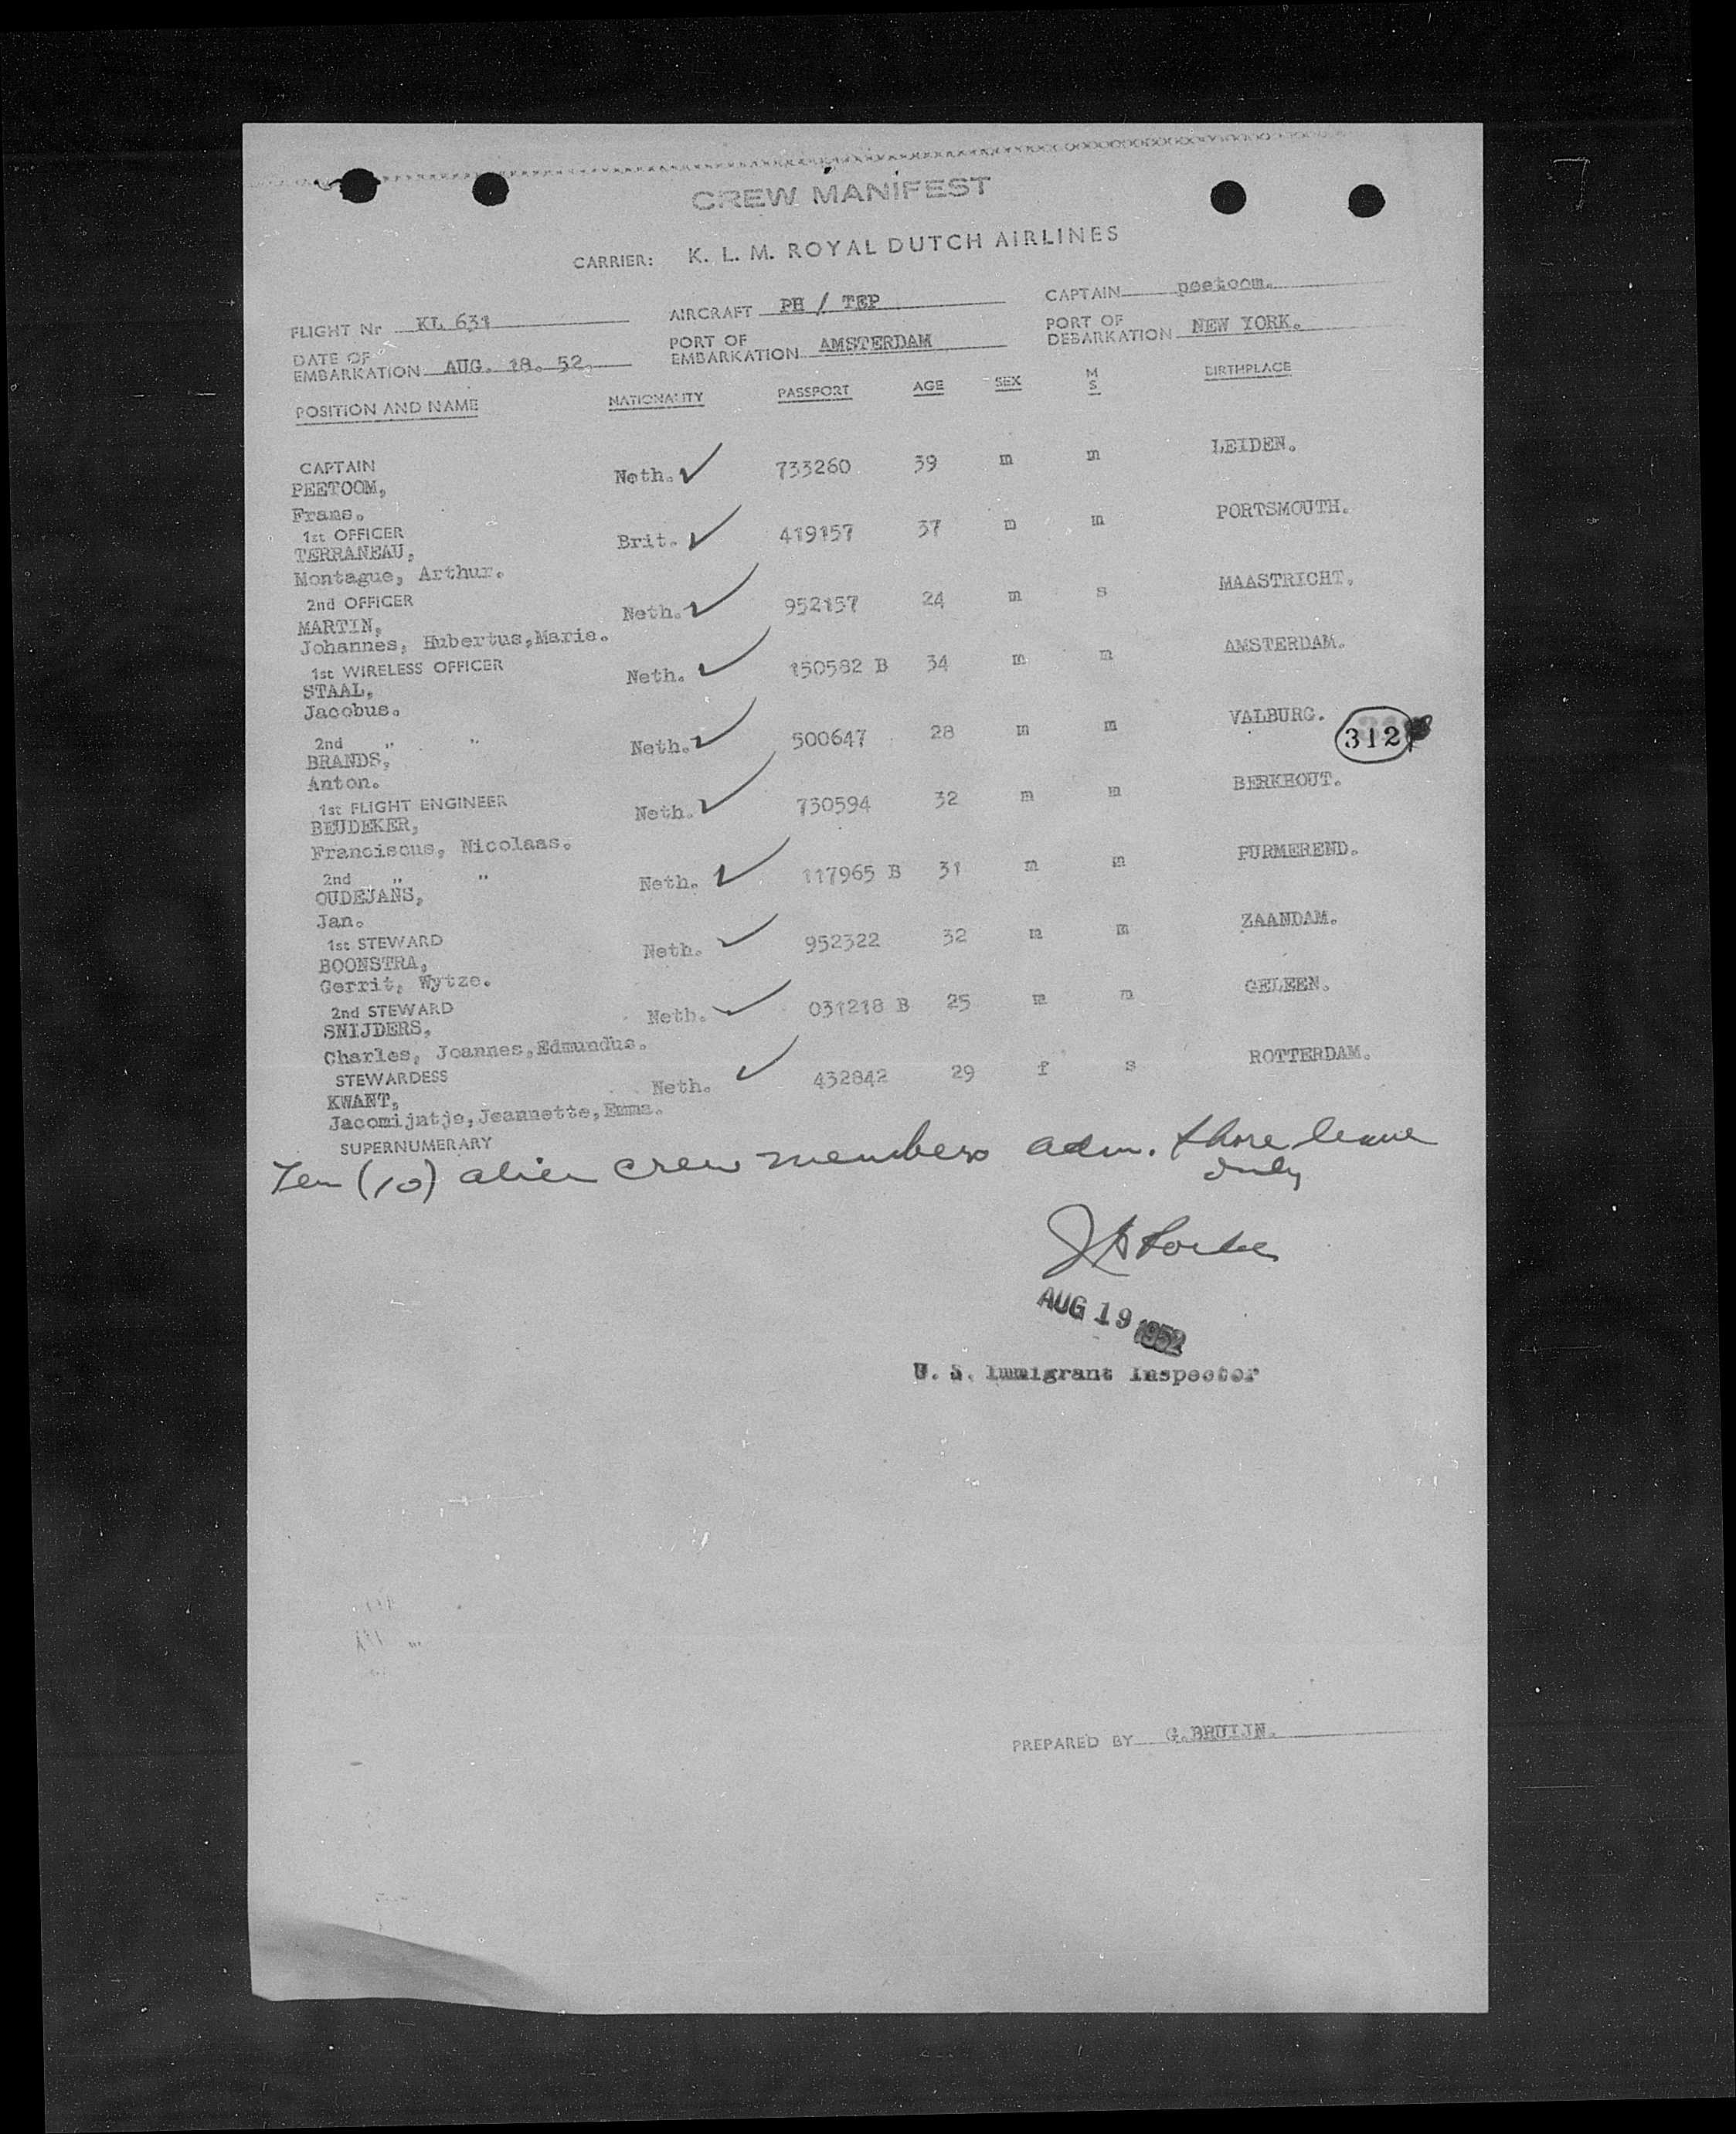 CREW MANIFEST
CARRIER: K. L. M. ROYAL DUTCH AIRLINES
FLIGHT Nr KL 631 AIRCRAFT PH / TEP CAPTAIN peetoom.
DATE OF EMBARKATION AUG. 18. 52. PORT OF EMBARKATION AMSTERDAM PORT OF DEBARKATION NEW YORK.
POSITION AND NAME NATIONALITY PASSPORT AGE SEX M S BIRTHPLACE
CAPTAIN
PEETOOM, Neth. ✓ 733260 39 m m LEIDEN.
Frans.
1st OFFICER
TERRANEAU, Brit. ✓ 419157 37 m m PORTSMOUTH.
Montague, Arthur.
2nd OFFICER
MARTIN, Neth. ✓ 952157 24 m s MAASTRICHT.
Johannes, Hubertus,Marie.
1st WIRELESS OFFICER
STAAL, Neth. ✓ 150582 B 34 m m AMSTERDAM.
Jacobus.
2nd " "
BRANDS, Neth. ✓ 500647 28 m m VALBURG.
312
Anton.
1st FLIGHT ENGINEER
BEUDEKER, Neth. ✓ 730594 32 m m BERKHOUT.
Franciscus, Nicolaas.
2nd " "
OUDEJANS, Neth. ✓ 117965 B 31 m m PURMEREND.
Jan.
1st STEWARD
BOONSTRA, Neth. ✓ 952322 32 m m ZAANDAM.
Gerrit, Wytze.
2nd STEWARD
SNIJDERS, Neth. ✓ 031218 B 25 m m GELEEN.
Charles, Joannes,Edmundus.
STEWARDESS
KWANT, Neth. ✓ 432842 29 f s ROTTERDAM.
Jacomijntje,Jeannette,Emma.
SUPERNUMERARY
Ten (10) alien crew members adm. shore leave
only
AUG 19 1952
U. S. Immigrant Inspector
PREPARED BY G.BRUIJN.